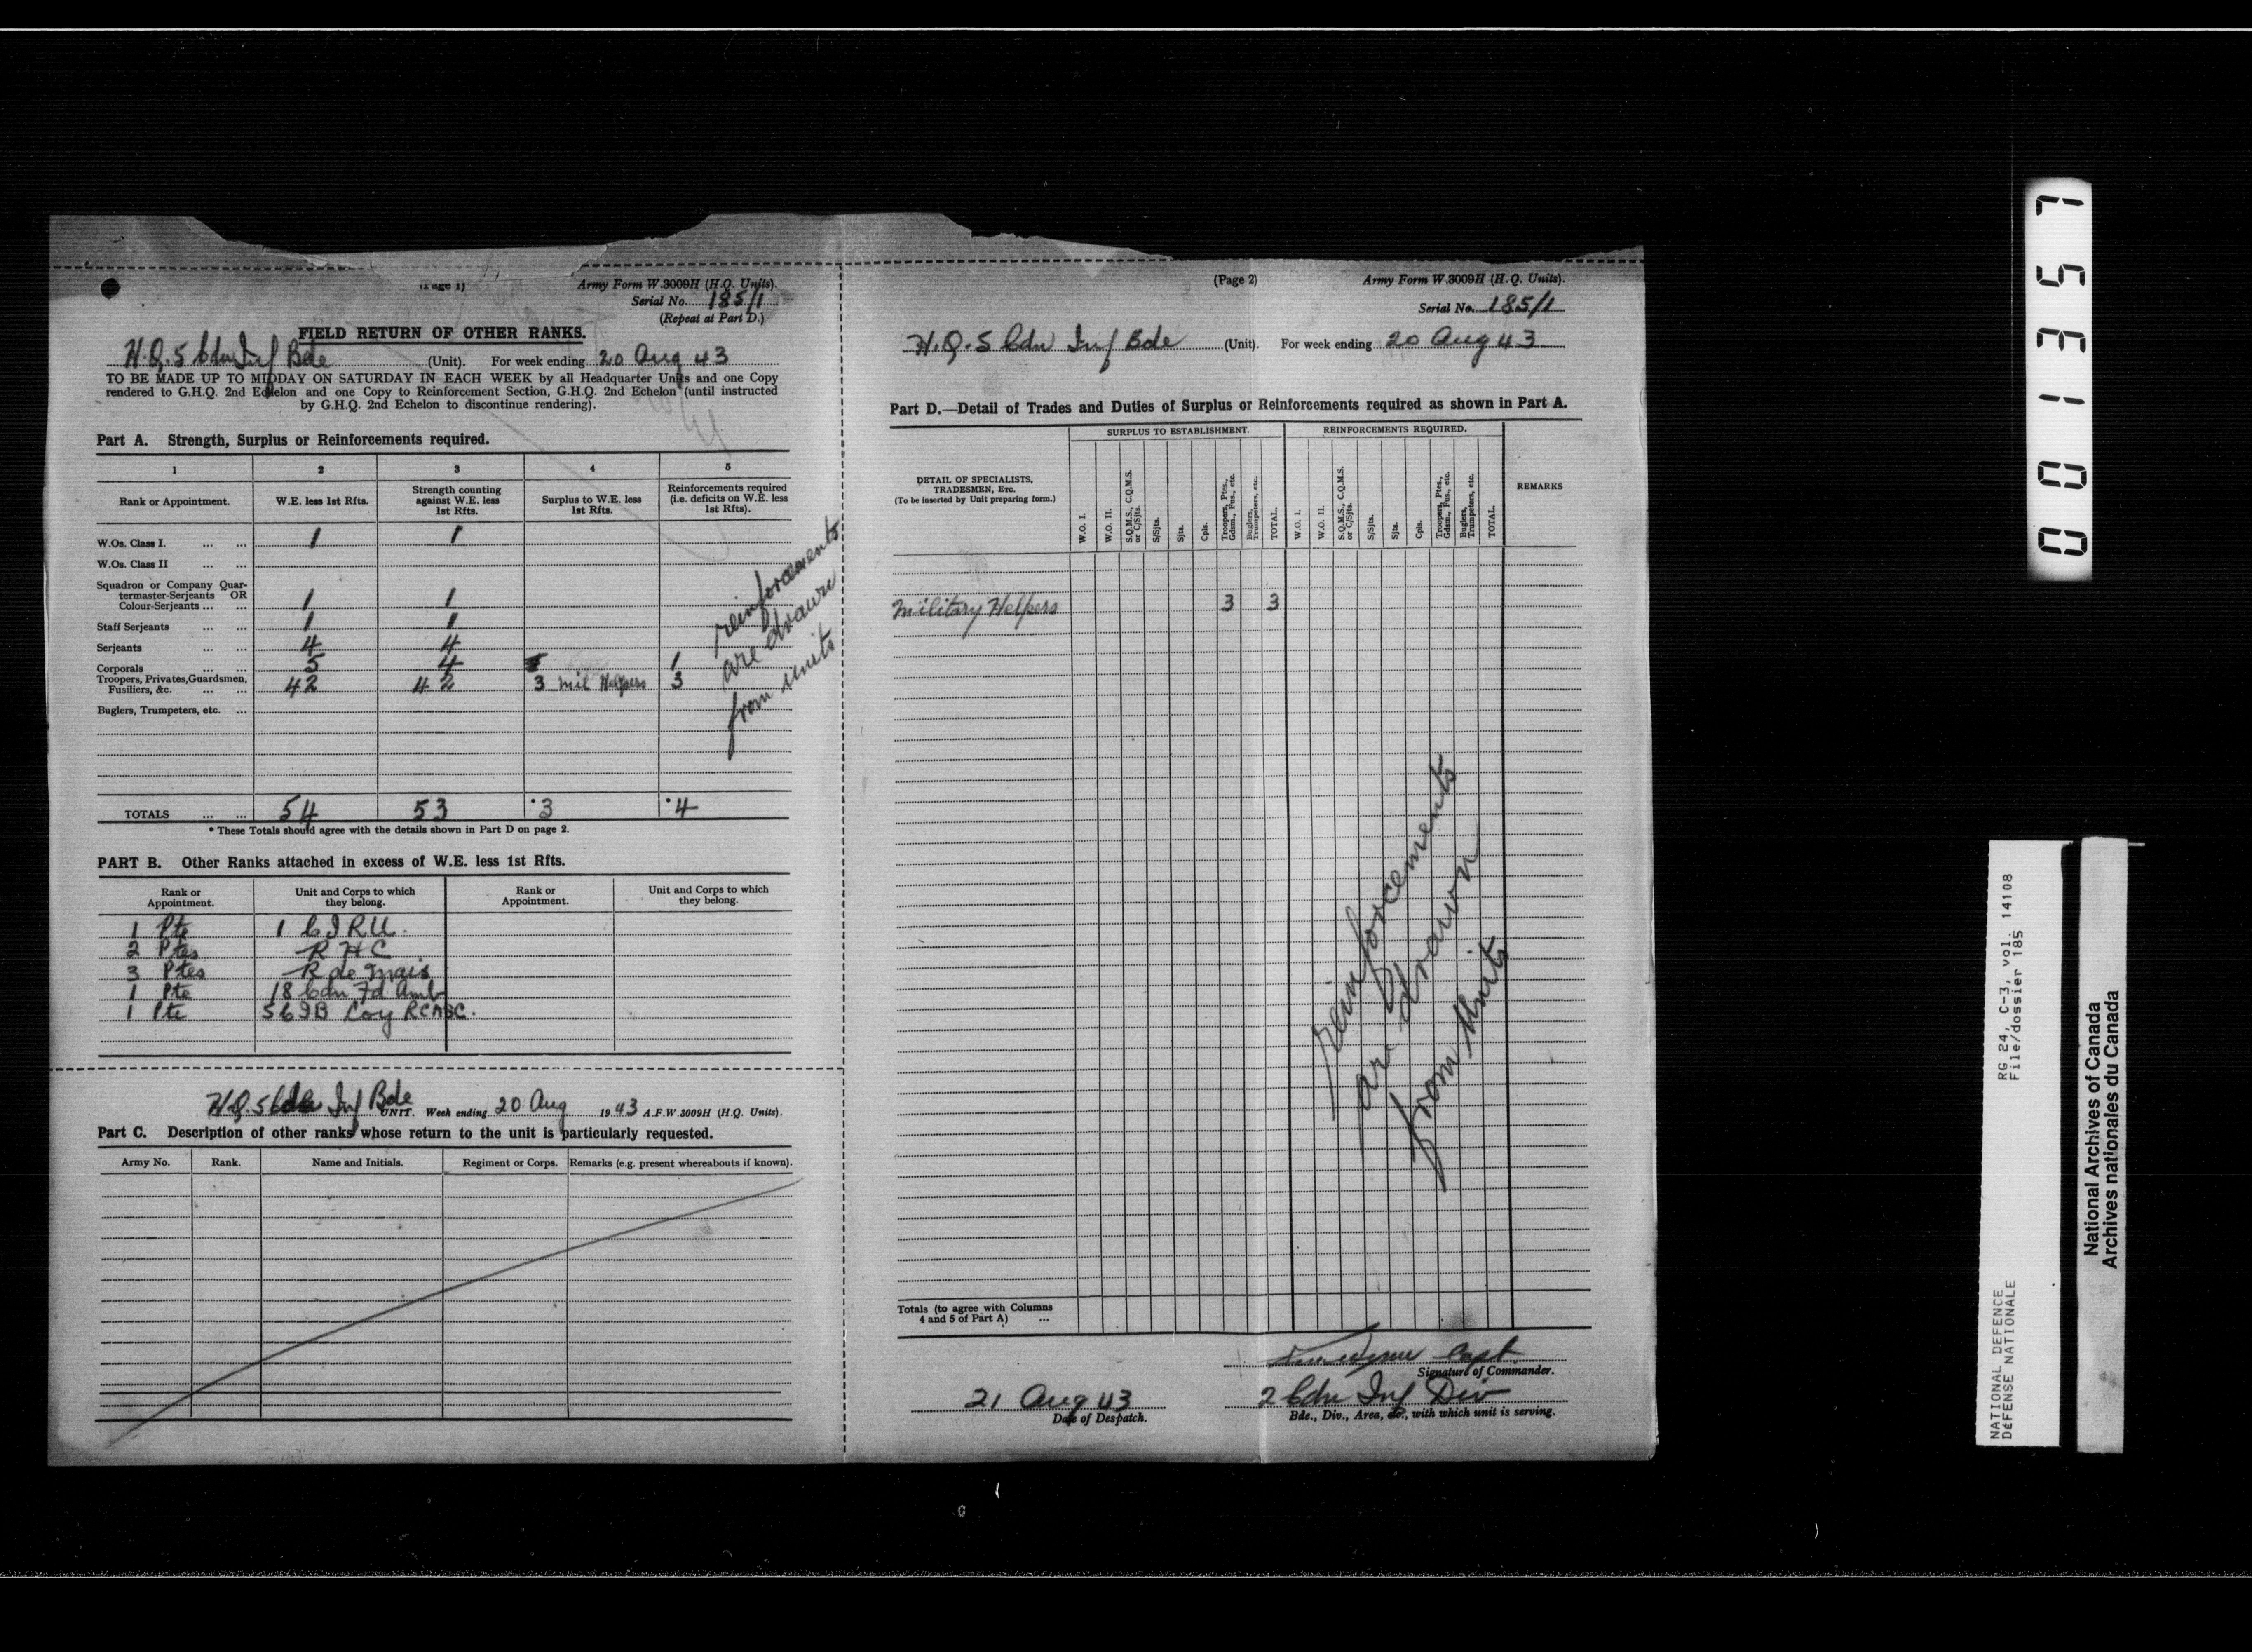 (Page 1)
Army Form W.3009H (H.Q. Units).
Serial No. 185/1
(Repeat at Part D.)
FIELD RETURN OF OTHER RANKS.
H.Q. 5 Cdn Inf Bde (Unit). For week ending 20 Aug 43
TO BE MADE UP TO MIDDAY ON SATURDAY IN EACH WEEK by all Headquarter Units and one Copy
rendered to G.H.Q. 2nd Echelon and one Copy to Reinforcement Section, G.H.Q. 2nd Echelon (until instructed
by G.H.Q. 2nd Echelon to discontinue rendering).
Part A. Strength, Surplus or Reinforcements required.
1 2 3 4 5
Rank or Appointment. W.E. less 1st Rfts. Strength counting against W.E. less 1st Rfts. Surplus to W.E. less 1st Rfts. Reinforcements required (i.e. deficits on W.E. less 1st Rfts).
W.Os. Class I. ... ... 1 1
W.Os. Class II ... ...
Squadron or Company Quar-
termaster-Serjeants OR
Colour-Serjeants ... ... 1 1
Staff Serjeants ... ... 1 1
Serjeants ... ... 4 4
Corporals ... ... 5 4 1
Troopers, Privates, Guardsmen,
Fusiliers, &c. ... ... 42 42 3 Mil Helpers 3
Buglers, Trumpeters, etc. ...
reinforcements
are drawn
from units
TOTALS ... ... 54 53 *3 *4
* These Totals should agree with the details shown in Part D on page 2.
PART B. Other Ranks attached in excess of W.E. less 1st Rfts.
Rank or Appointment. Unit and Corps to which they belong. Rank or Appointment. Unit and Corps to which they belong.
1 Pte 1 CIRU.
2 Ptes R H C
3 Ptes R de Mais
1 Pte 18 Cdn Fd Amb
1 Pte 5 CIB Coy RCASC.
H.Q. 5 Cdn Inf Bde UNIT. Week ending 20 Aug 1943 A.F.W. 3009H (H.Q. Units).
Part C. Description of other ranks whose return to the unit is particularly requested.
Army No. Rank. Name and Initials. Regiment or Corps. Remarks (e.g. present whereabouts if known).
(Page 2)
Army Form W.3009H (H.Q. Units).
Serial No. 185/1
H.Q. 5 Cdn Inf Bde (Unit). For week ending 20 Aug 43
Part D.—Detail of Trades and Duties of Surplus or Reinforcements required as shown in Part A.
SURPLUS TO ESTABLISHMENT. REINFORCEMENTS REQUIRED.
DETAIL OF SPECIALISTS,
TRADESMEN, ETC.
(To be inserted by Unit preparing form.)
W.O. I. W.O. II. S.Q.M.S., C.Q.M.S. or C/Sjts. S/Sjts. Sjts. Cpls. Troopers, Ptes., Gdsm., Fus., etc. Buglers, Trumpeters, etc. TOTAL. W.O. I. W.O. II. S.Q.M.S., C.Q.M.S. or C/Sjts. S/Sjts. Sjts. Cpls. Troopers, Ptes., Gdsm., Fus., etc. Buglers, Trumpeters, etc. TOTAL. REMARKS
Military Helpers 3 3
reinforcements
are drawn
from Units
Totals (to agree with Columns
4 and 5 of Part A) ...
Capt
Signature of Commander.
21 Aug 43
Date of Despatch.
2 Cdn Inf Div
Bde., Div., Area, &c., with which unit is serving.
001357
RG 24, C-3, vol. 14108
File/dossier 185
NATIONAL DEFENCE
DÉFENSE NATIONALE
National Archives of Canada
Archives nationales du Canada